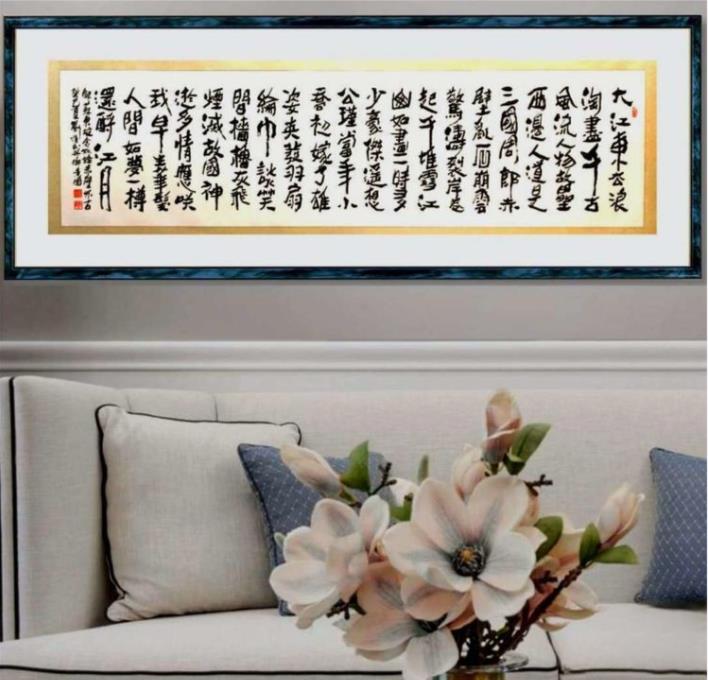 大江東去浪
淘盡千古
風流人物故壘
西邊人道是
三國周郎赤
壁亂石崩雲
驚濤裂岸捲
起千堆雪江
山如畫一時多
少豪傑遙想
公瑾當年小
喬初嫁了雄
姿英發羽扇
綸巾談笑
間檣櫓灰飛
煙滅故國神
遊多情應笑
我早生華髮
人間如夢一樽
還酹江月
蘇東坡念奴嬌赤壁懷古